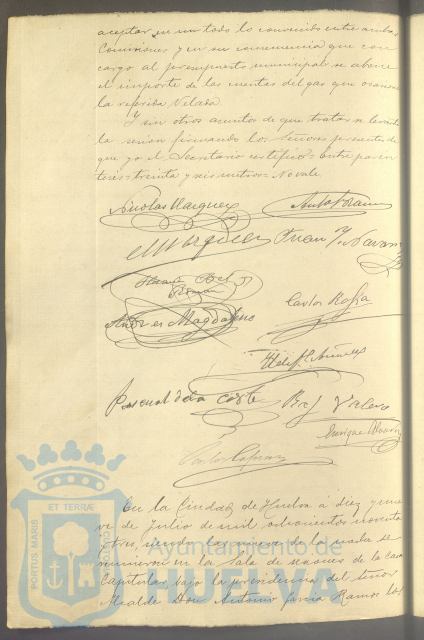 aceptar en un todo lo convenido entre ambas
Comisiones y en su consecuencia que con
cargo al presupuesto municipal se abone
el importe de las cuentas del gas que ocasione
la referida Velada.
Y sin otros asuntos de que tratar se levantó
la sesion firmando los Señores presentes de
que yo el Secretario certifico = Entre paren
tesis = treinta y seis metros = No vale
Nicolas Vazquez
M Vazquez
Juan J. Navarro
Carlos Rofa
Andres Magdaleno
Pascual de la Corte
Raf Valera
Enrique
Carlos
En la Ciudad de Huelva á diez y nue
ve de Julio de mil ochocientos noventa
y tres, siendo las nueve de la noche se
reunieron en la Sala de sesiones de la Casa
Capitular bajo la presidencia del Señor
Alcalde Don Antonio Garcia Ramos los
PORTUS MARIS ET TERRÆ CUSTODIA
Ayuntamiento de
HUELVA